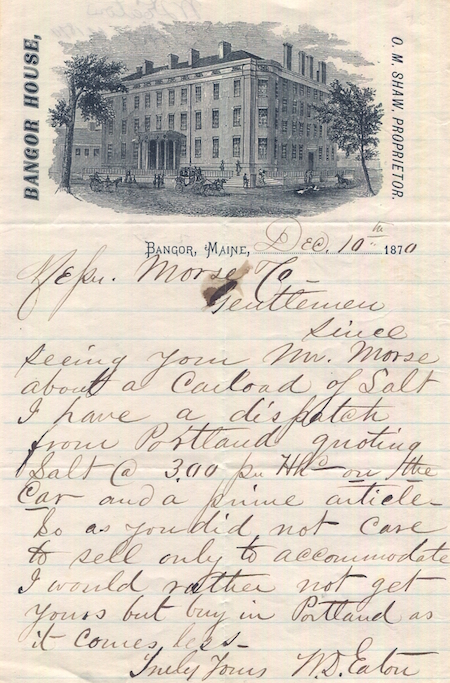 BANGOR HOUSE,
O. M. SHAW, PROPRIETOR.
BANGOR, MAINE, Dec. 10th 1870
Messrs. Morse & Co –
Gentlemen
Since
seeing your Mr. Morse
about a Carload of Salt
I have a dispatch
from Portland quoting
Salt @ 3.00 per Hhd on the
Car and a prime article –
So as you did not care
to sell only to accommodate
I would rather not get
yours but buy in Portland as
it comes less –
Truly Yours W.D. Eaton